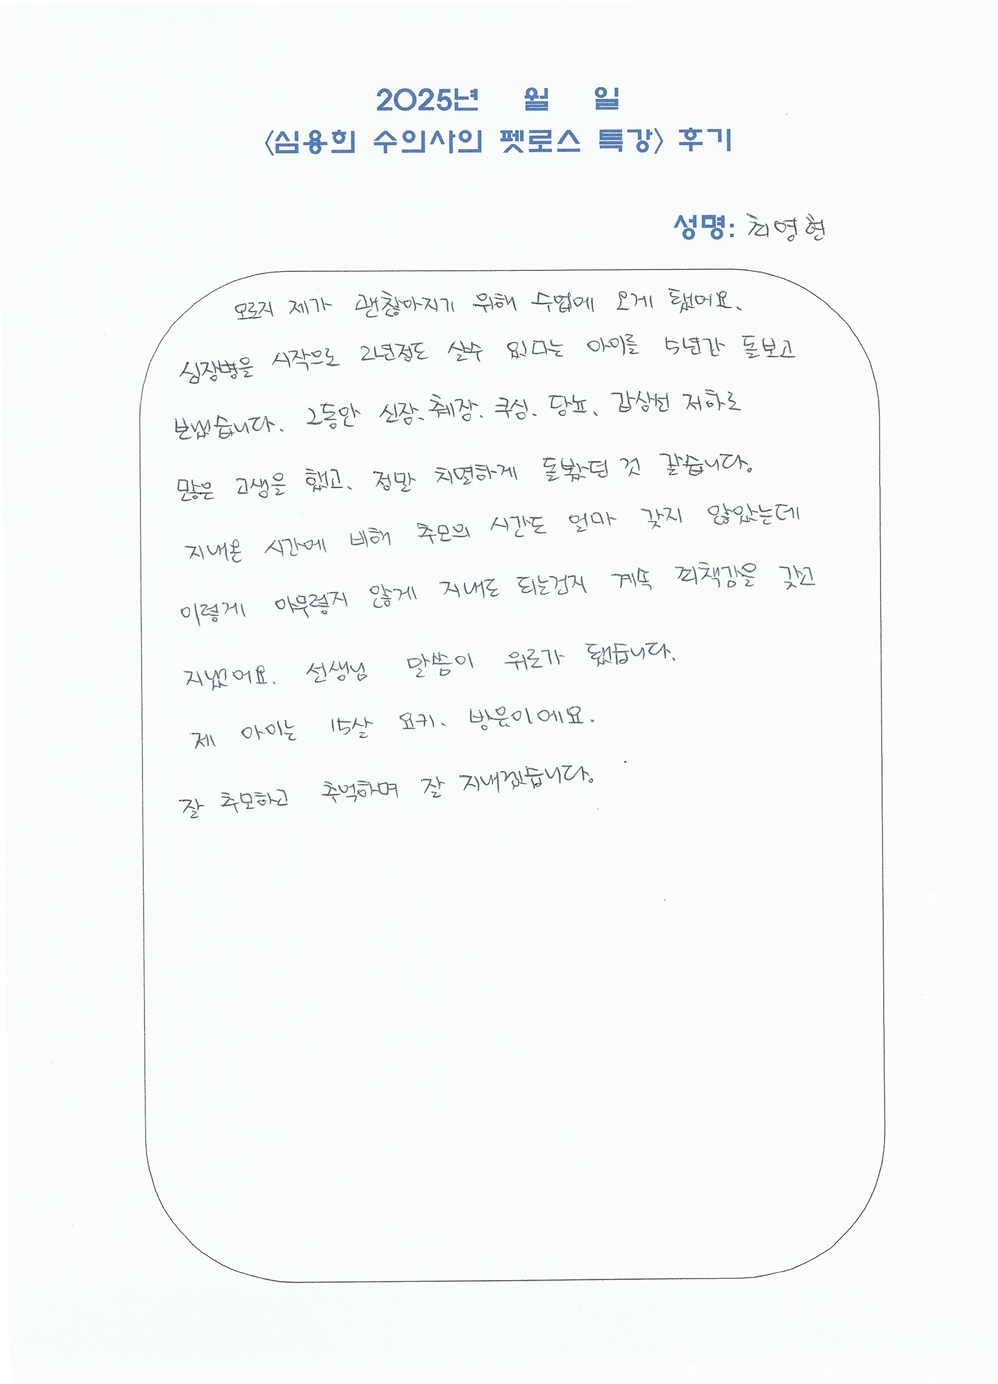 2025년 월 일
<심용희 수의사의 펫로스 특강> 후기
성명: 최영현
오로지 제가 괜찮아지기 위해 수업에 오게 됐어요.
심장병을 시작으로 2년정도 살수 있다는 아이를 5년간 돌보고
보냈습니다. 그동안 신장, 췌장, 쿠싱, 당뇨, 갑상선 저하로
많은 고생을 했고, 정말 치열하게 돌봤던 것 같습니다.
지내온 시간에 비해 추모의 시간도 얼마 갖지 않았는데
이렇게 아무렇지 않게 지내도 되는건지 계속 죄책감을 갖고
지냈어요. 선생님 말씀이 위로가 됐습니다.
제 아이는 15살 요키, 방은이에요.
잘 추모하고 추억하며 잘 지내겠습니다.